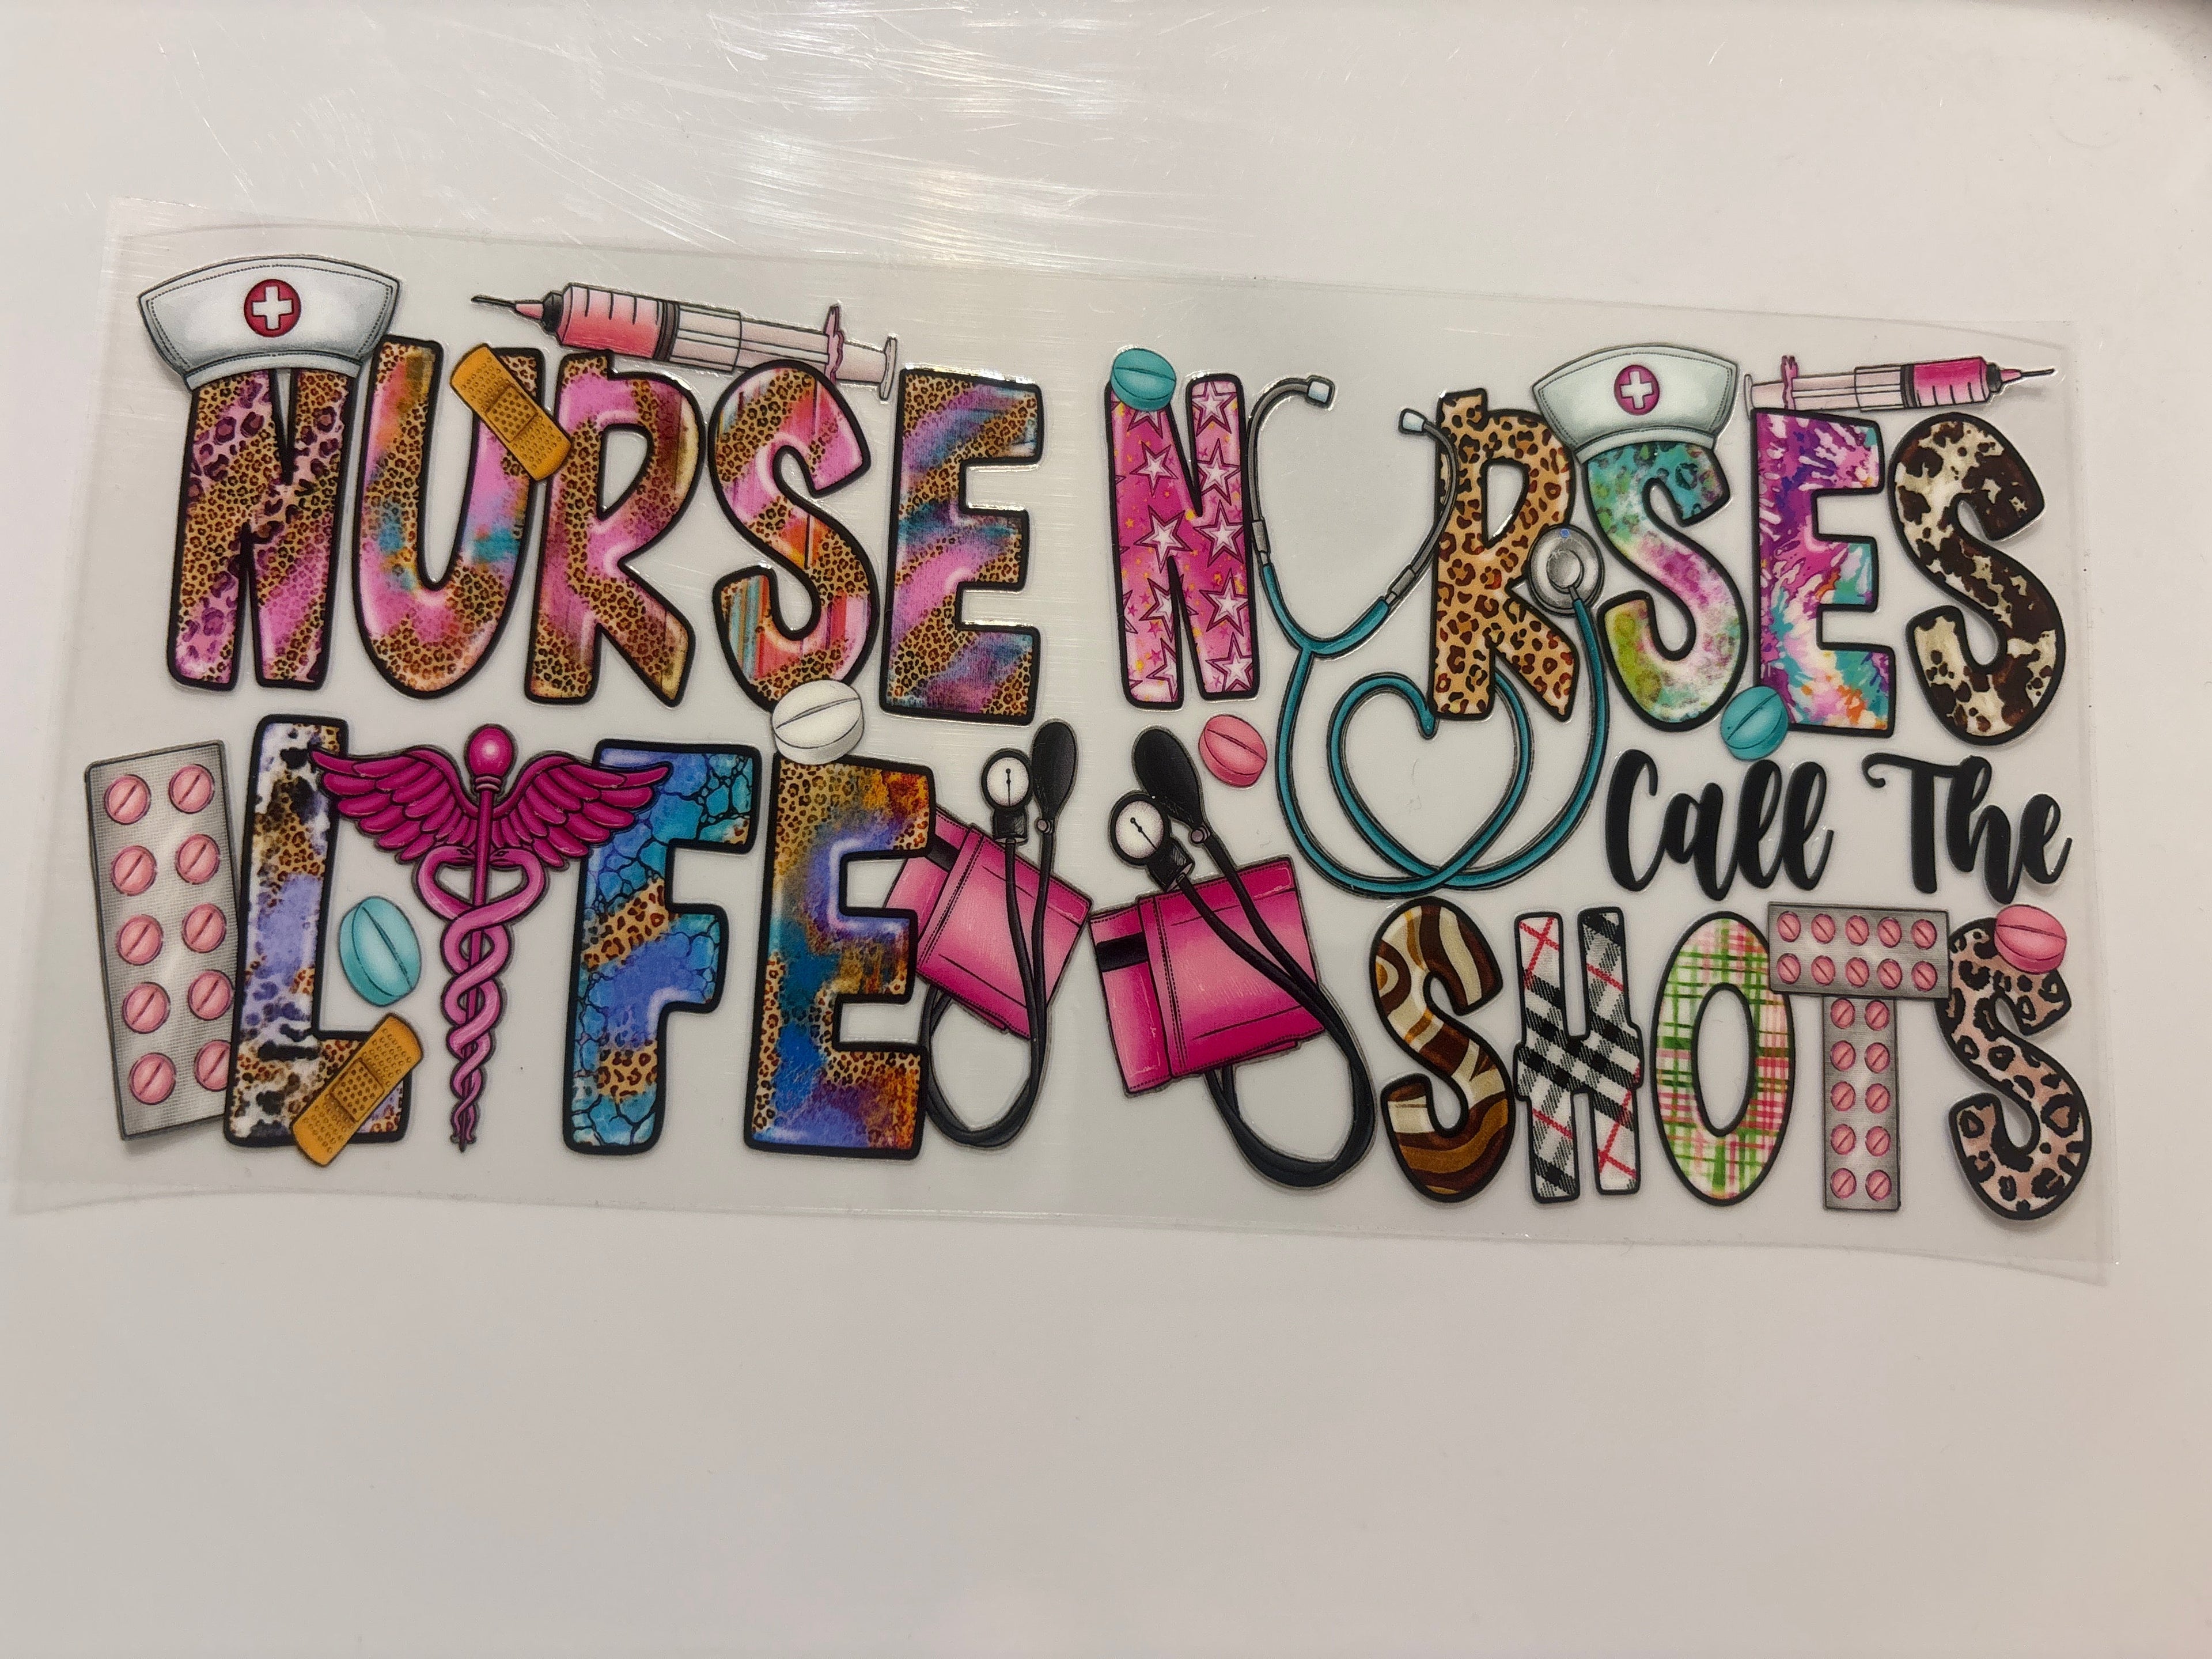 NURSE
LIFE
NURSES
Call The
SHOTS